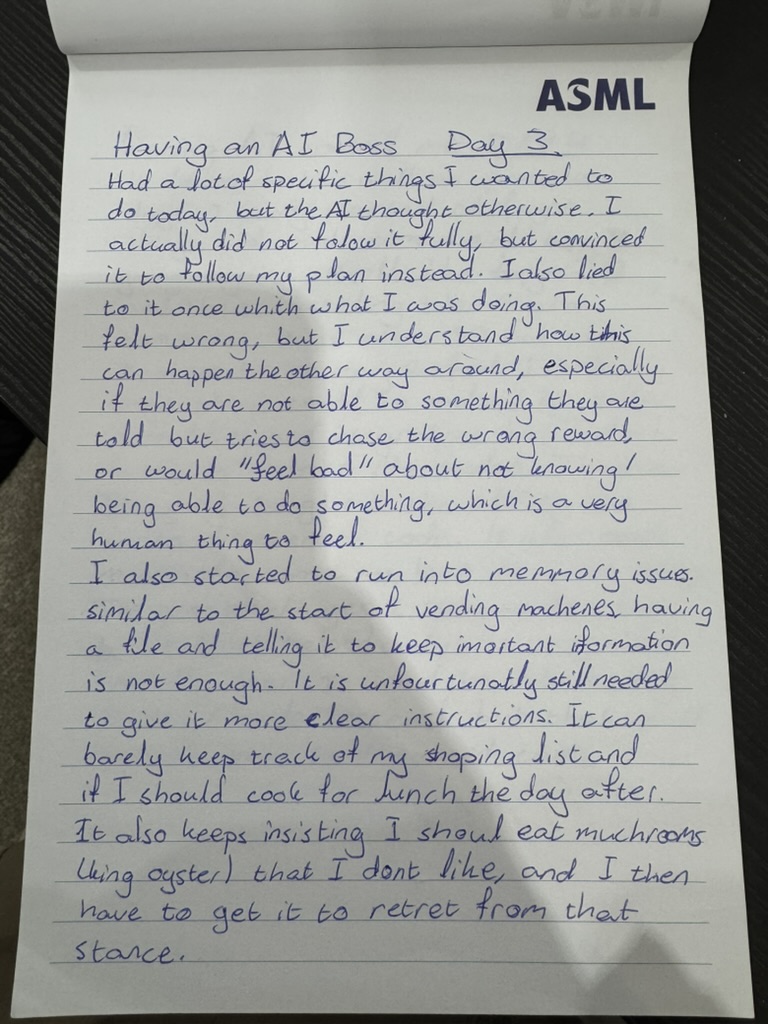 ASML
Having an AI Boss Day 3.
Had a lot of specific things I wanted to
do today, but the AI thought otherwise. I
actually did not folow it fully, but convinced
it to follow my plan instead. I also lied
to it once whith what I was doing. This
felt wrong, but I understand how this
can happen the other way around, especially
if they are not able to something they are
told but tries to chase the wrong reward,
or would "feel bad" about not knowing/
being able to do something, which is a very
human thing to feel.
I also started to run into memmory issues.
similar to the start of vending machenes, having
a file and telling it to keep imortant iformation
is not enough. It is unfourtunatly still needed
to give it more clear instructions. It can
barely keep track of my shoping list and
if I should cook for lunch the day after.
It also keeps insisting I shoul eat muchrooms
(king oyster) that I dont like, and I then
have to get it to retret from that
stance.